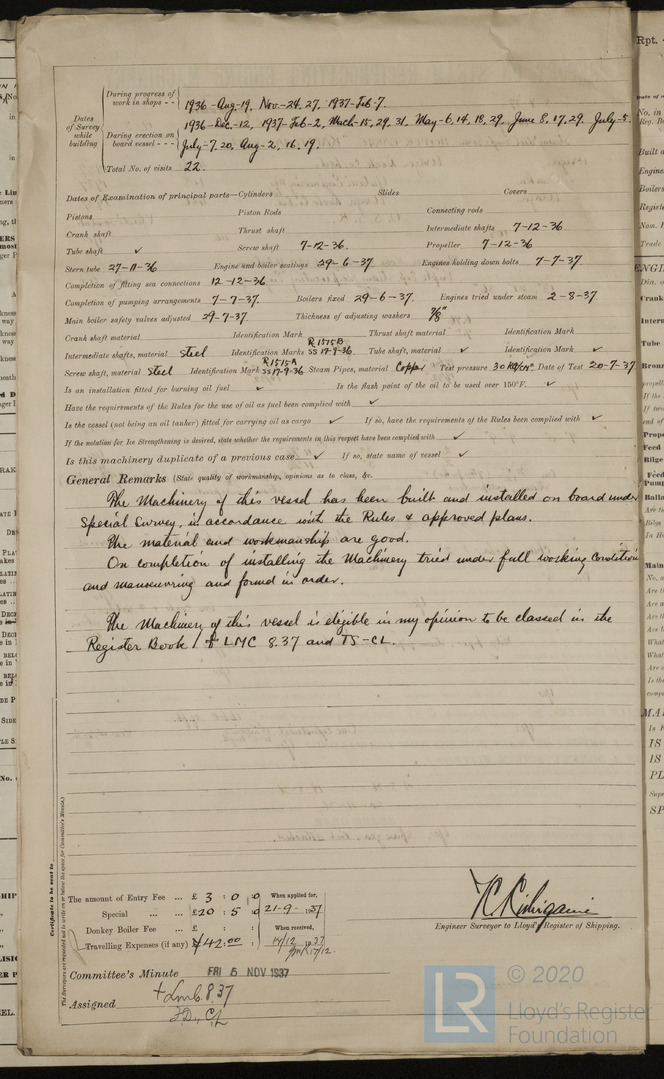 During progress of work in shops - - 1936-Aug-19, Nov.-24.27, 1937-Feb-7.
Dates of Survey while building
During erection on board vessel - - - 1936-Dec.-12, 1937-Feb-2, Mach-15,29.31, May-6,14,18,29, June 8,17,29. July-5.
July-7.20, Aug-2,16,19.
Total No. of visits 22.
Dates of Examination of principal parts—Cylinders Slides Covers
Pistons Piston Rods Connecting rods
Crank shaft Thrust shaft Intermediate shafts 7-12-36
Tube shaft ✓ Screw shaft 7-12-36. Propeller 7-12-36
Stern tube 27-11-36 Engine and boiler seatings 29-6-37. Engines holding down bolts 7-7-37
Completion of fitting sea connections 12-12-36
Completion of pumping arrangements 7-7-37. Boilers fixed 29-6-37. Engines tried under steam 2-8-37
Main boiler safety valves adjusted 29-7-37 Thickness of adjusting washers 7/8"
Crank shaft material Identification Mark Thrust shaft material Identification Mark
Intermediate shafts, material Steel Identification Marks R.1515B SS 17-9-36 Tube shaft, material ✓ Identification Mark ✓
Screw shaft, material Steel Identification Mark R1515A SS 17-9-36 Steam Pipes, material Copper Test pressure 30 KG/cm² Date of Test 20-7-37
Is an installation fitted for burning oil fuel ✓ Is the flash point of the oil to be used over 150°F. ✓
Have the requirements of the Rules for the use of oil as fuel been complied with ✓
Is the vessel (not being an oil tanker) fitted for carrying oil as cargo ✓ If so, have the requirements of the Rules been complied with ✓
If the notation for Ice Strengthening is desired, state whether the requirements in this respect have been complied with ✓
Is this machinery duplicate of a previous case ✓ If so, state name of vessel ✓
General Remarks (State quality of workmanship, opinions as to class, &c.
The Machinery of this vessel has been built and installed on board under
Special Survey, in accordance with the Rules & approved plans.
The material and workmanship are good.
On completion of installing the Machinery tried under full working Condition
and manoeuvring and found in order.
The Machinery of this vessel is eligible in my opinion to be classed in the
Register Book, + LMC 8.37 and TS-CL.
Certificate to be sent to
The Surveyors are requested not to write on or below the space for Committee's Minute.
The amount of Entry Fee ... £ 3 : 0 : 0 When applied for,
Special ... ... £20 : 5 : 0 21-9- 1937
Donkey Boiler Fee ... £ : : When received,
Travelling Expenses (if any) ¥42.00 : 14/12 1937
Engineer Surveyor to Lloyd's Register of Shipping.
Committee's Minute FRI 5 NOV 1937
Assigned + Lmb 8.37
FD, CL
LR © 2020
Lloyd's Register
Foundation